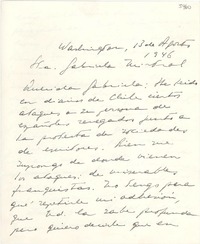 Washington, 13 de Agosto
1946
Sra. Gabriela Mistral
Querida Gabriela: He leído
en diarios de Chile ciertos
ataques a su persona de
españoles renegados junto a
la protesta de sociedades
de escritores. Bien me
supongo de donde vienen
los ataques: de miserables
franquistas. No tengo para
que repetirle mi adhesión,
que Ud. la sabe profunda
pero quiero decirle que en